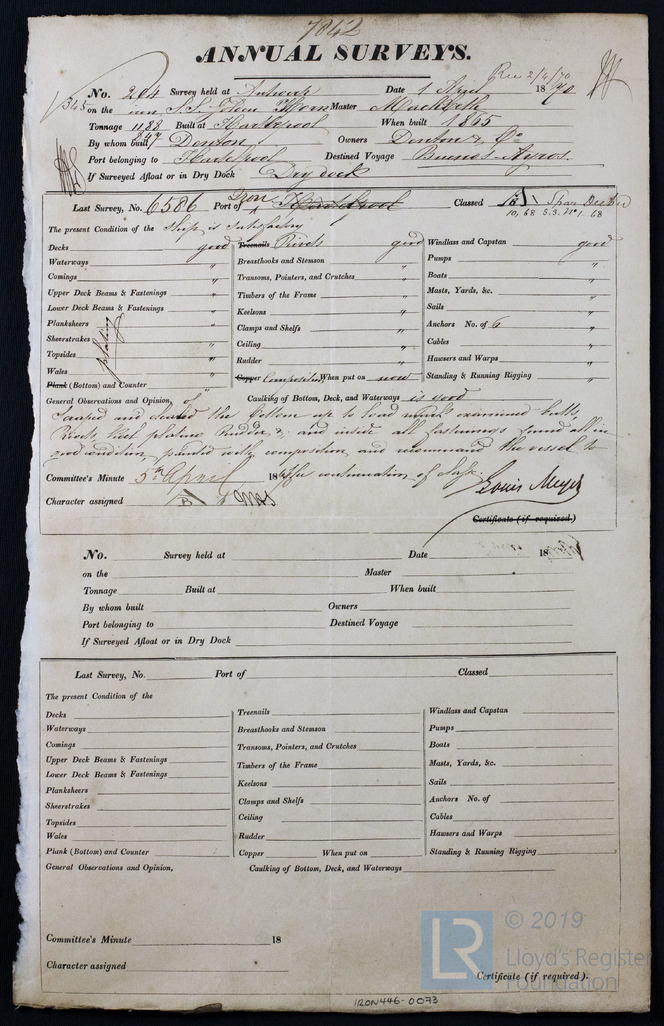 7842
ANNUAL SURVEYS.
Rec 2/4/70
No. 264 Survey held at Antwerp Date 1 April 1870
on the iron S.S. Master Macbeth
Tonnage 1188 Built at Hartlepool When built 1865
847
By whom built Denton Owners Denton & Co
Port belonging to Hartlepool Destined Voyage Buenos-Ayres.
If Surveyed Afloat or in Dry Dock Dry dock
Last Survey, No. 6586 Port of Iron Hartlepool Classed
10, 68 S.S. No 1. 68
The present Condition of the Ship is Satisfactory
Decks good
Waterways "
Comings "
Upper Deck Beams & Fastenings "
Lower Deck Beams & Fastenings "
Planksheers "
Sheerstrakes "
Topsides "
Wales "
plating
Plank (Bottom) and Counter
Treenails Rivets good
Breasthooks and Stemson "
Transoms, Pointers, and Crutches "
Timbers of the Frame "
Keelsons "
Clamps and Shelfs "
Ceiling "
Rudder "
Copper Composition When put on now
Windlass and Capstan good
Pumps "
Boats "
Masts, Yards, &c. "
Sails "
Anchors No. of 6 "
Cables "
Hawsers and Warps "
Standing & Running Rigging "
General Observations and Opinion, of Caulking of Bottom, Deck, and Waterways is good
Scraped and cleaned the bottom up to load examined butts,
Rivets, keel plating Rudder & and inside all fastenings found all in
good condition, painted with composition, and recommend the vessel to
Committee's Minute 5th April 18 continuation of
Louis Meyer
Character assigned
Certificate (if required.)
No. Survey held at Date 18
on the Master
Tonnage Built at When built
By whom built Owners
Port belonging to Destined Voyage
If Surveyed Afloat or in Dry Dock
Last Survey, No. Port of Classed
The present Condition of the
Decks
Waterways
Comings
Upper Deck Beams & Fastenings
Lower Deck Beams & Fastenings
Planksheers
Sheerstrakes
Topsides
Wales
Plank (Bottom) and Counter
Treenails
Breasthooks and Stemson
Transoms, Pointers, and Crutches
Timbers of the Frame
Keelsons
Clamps and Shelfs
Ceiling
Rudder
Copper When put on
Windlass and Capstan
Pumps
Boats
Masts, Yards, &c.
Sails
Anchors No. of
Cables
Hawsers and Warps
Standing & Running Rigging
General Observations and Opinion, Caulking of Bottom, Deck, and Waterways
Committee's Minute 18
Character assigned
Certificate (if required).
LR © 2019
Lloyd's Register
Foundation
IRON446-0073